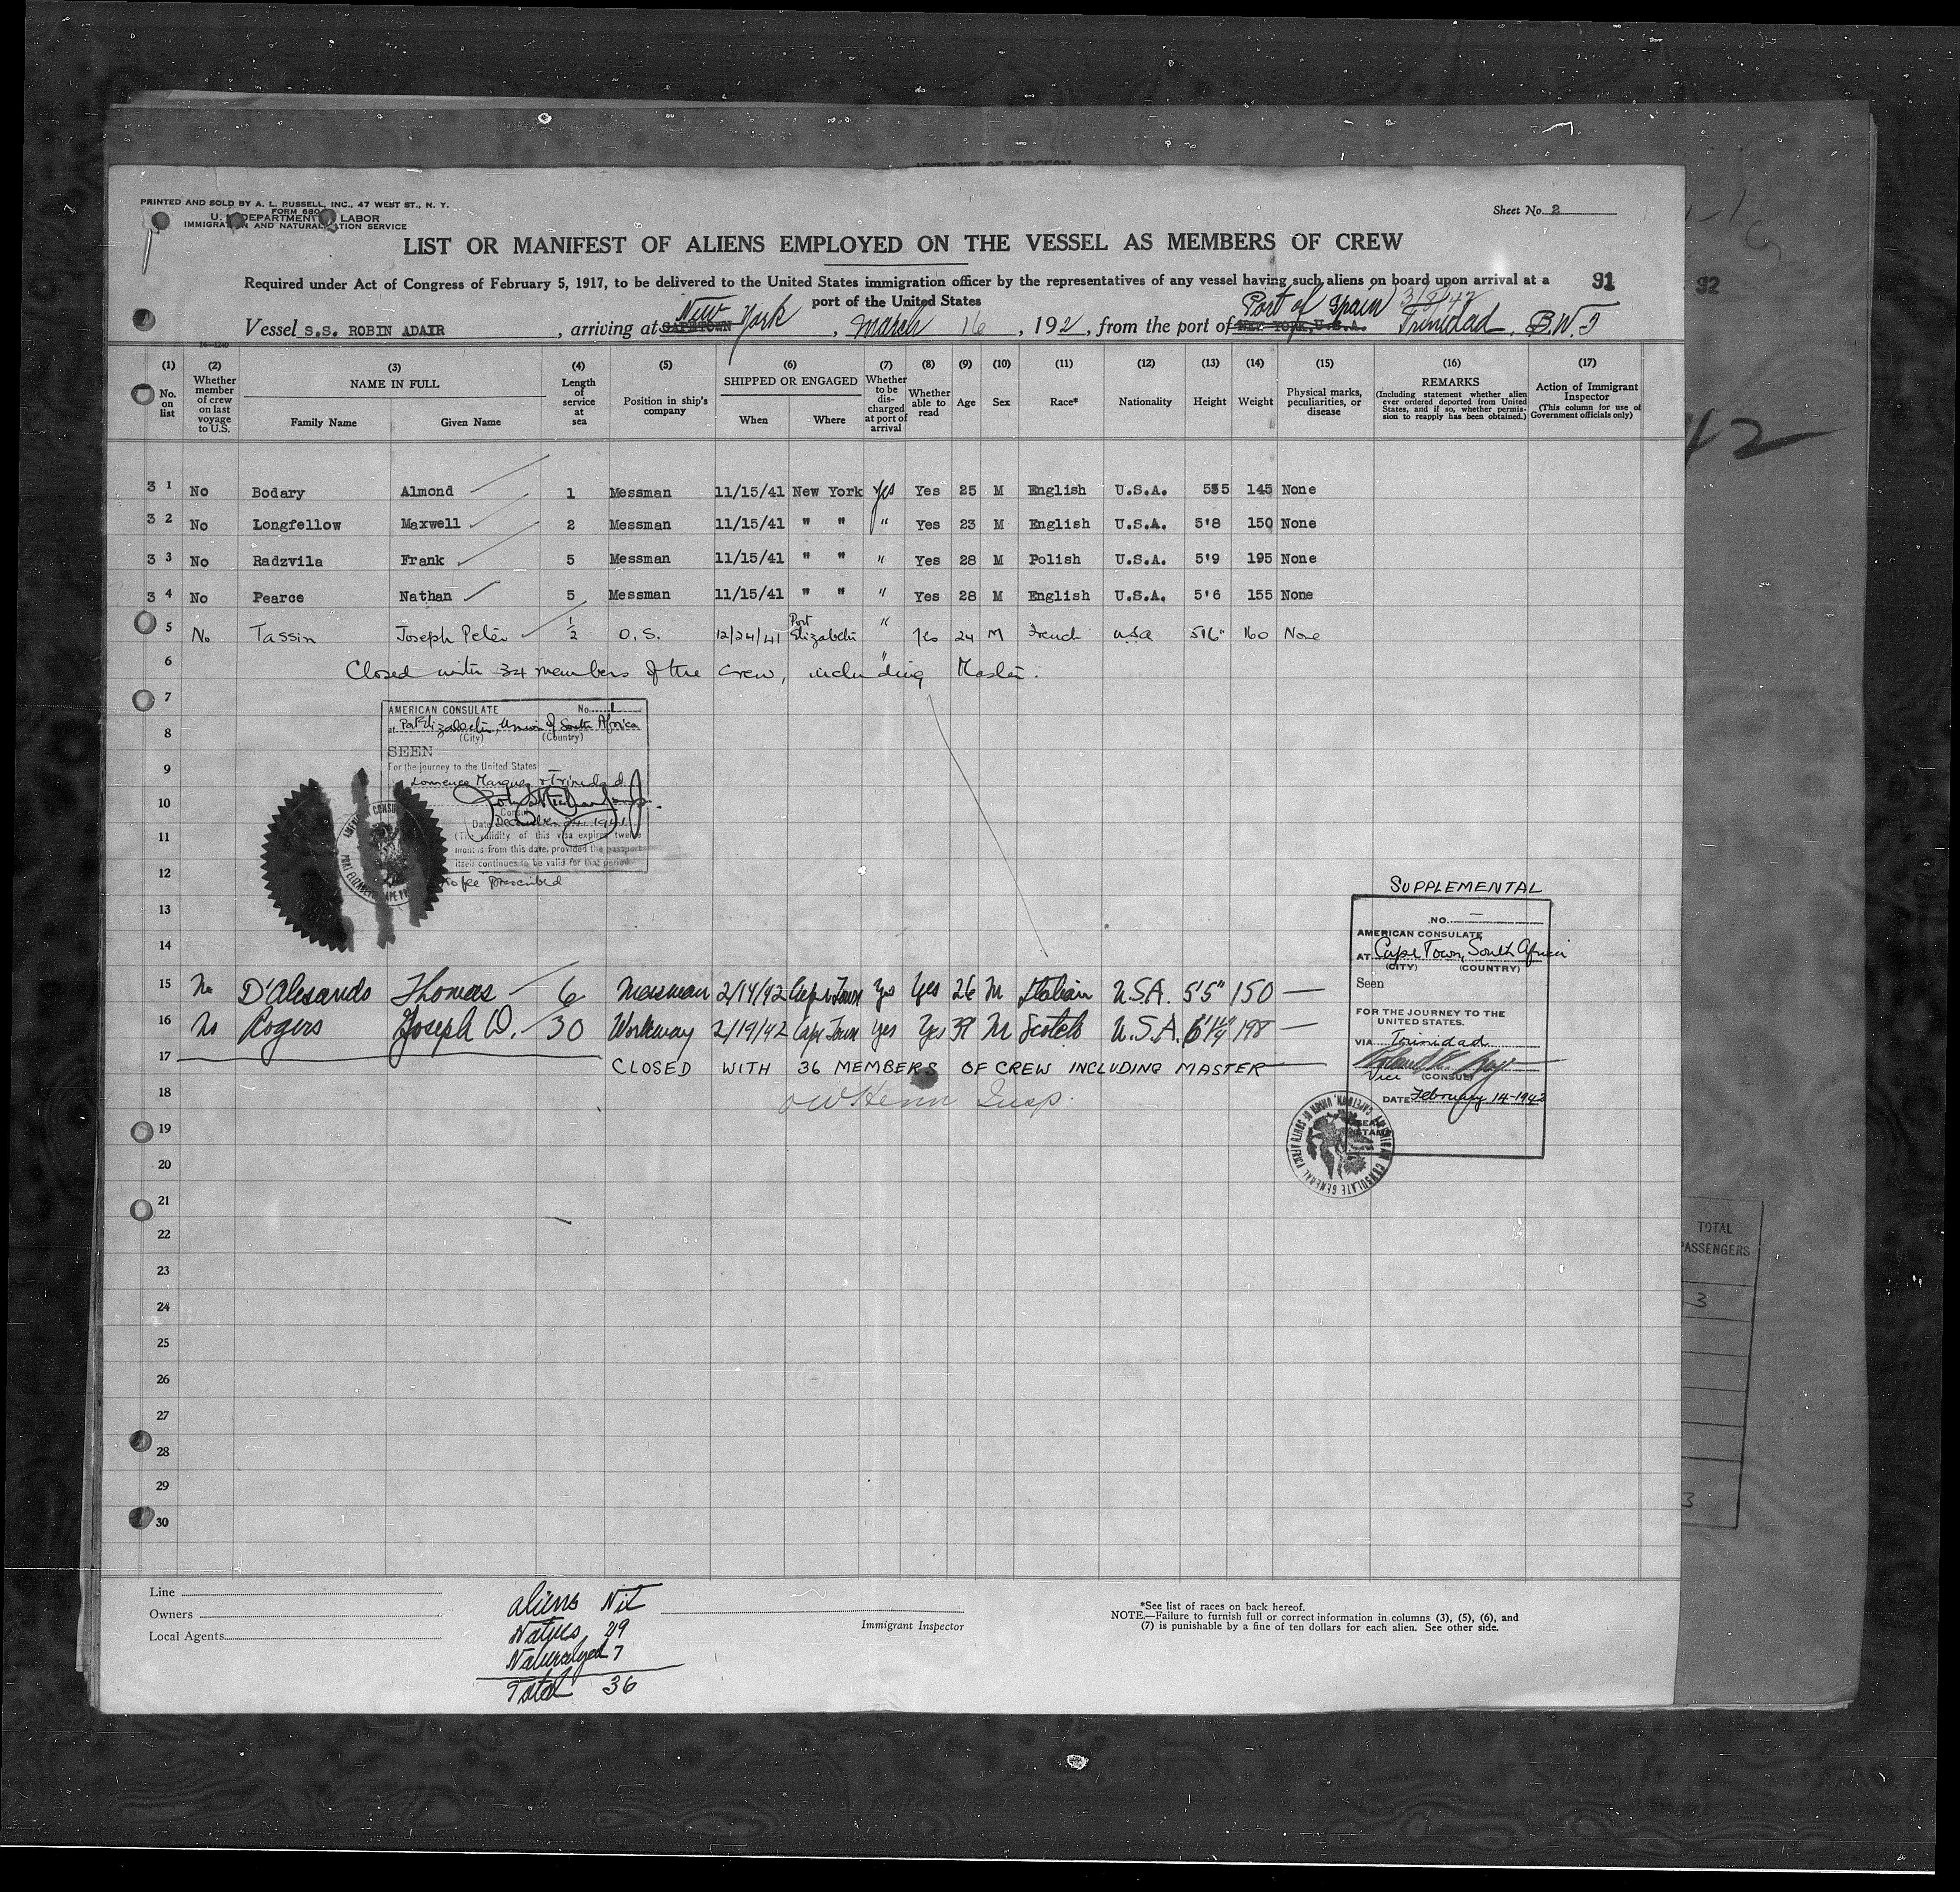 PRINTED AND SOLD BY A. L. RUSSELL, INC., 47 WEST ST., N. Y.
FORM 680
U. S. DEPARTMENT OF LABOR
IMMIGRATION AND NATURALIZATION SERVICE
Sheet No. 2
LIST OR MANIFEST OF ALIENS EMPLOYED ON THE VESSEL AS MEMBERS OF CREW
Required under Act of Congress of February 5, 1917, to be delivered to the United States immigration officer by the representatives of any vessel having such aliens on board upon arrival at a
port of the United States
91
92
New York
Port of Spain 3/9/42
Vessel S.S. ROBIN ADAIR, arriving at CAPETOWN, March 16, 192, from the port of NEW YORK, U.S.A. Trinidad, B.W.I
(1) (2) (3) (4) (5) (6) (7) (8) (9) (10) (11) (12) (13) (14) (15) (16) (17)
No. on list
Whether member of crew on last voyage to U.S.
NAME IN FULL
Family Name Given Name
Length of service at sea
Position in ship's company
SHIPPED OR ENGAGED
When Where
Whether to be discharged at port of arrival
Whether able to read
Age
Sex
Race*
Nationality
Height
Weight
Physical marks, peculiarities, or disease
REMARKS
(Including statement whether alien ever ordered deported from United States, and if so, whether permission to reapply has been obtained.)
Action of Immigrant Inspector
(This column for use of Government officials only)
3 1 No Bodary Almond 1 Messman 11/15/41 New York Yes Yes 25 M English U.S.A. 555 145 None
3 2 No Longfellow Maxwell 2 Messman 11/15/41 " " " Yes 23 M English U.S.A. 5'8 150 None
3 3 No Radzvila Frank 5 Messman 11/15/41 " " " Yes 28 M Polish U.S.A. 5'9 195 None
3 4 No Pearce Nathan 5 Messman 11/15/41 " " " Yes 28 M English U.S.A. 5'6 155 None
5 No Tassin Joseph Peter 1/2 O.S. 12/24/41 Port Elizabeth " Yes 24 M French USA 5'6" 160 None
6 Closed with 34 members of the crew, including Master.
7
8
9
10
11
12
13
14
AMERICAN CONSULATE No. 1
at Port Elizabeth, Union of South Africa
(City) (Country)
SEEN
For the journey to the United States
Lourenco Marques & Trinidad
Date December 24, 1941
(The validity of this visa expires twelve
months from this date, provided the passport
itself continues to be valid for that period
No fee prescribed
SUPPLEMENTAL
NO. —
AMERICAN CONSULATE
AT Cape Town, South Africa
(CITY) (COUNTRY)
Seen
FOR THE JOURNEY TO THE
UNITED STATES.
VIA Trinidad
Vice (CONSUL)
DATE February 14-1942
AMERICAN CONSULATE GENERAL CAPETOWN, UNION OF SOUTH AFRICA
15 No D'Alesando Thomas 6 Messman 2/14/42 Cape Town Yes Yes 26 M Italian U.S.A. 5'5" 150 —
16 No Rogers Joseph W. 30 Workaway 2/19/42 Cape Town Yes Yes 39 M Scotch U.S.A. 198 —
17 CLOSED WITH 36 MEMBERS OF CREW INCLUDING MASTER
18 Insp.
19
20
21
22
23
24
25
26
27
28
29
30
TOTAL
PASSENGERS
3
3
Line
Owners
Local Agents
aliens Nil
Natives 29
Naturalized 7
Total 36
Immigrant Inspector
*See list of races on back hereof.
NOTE.—Failure to furnish full or correct information in columns (3), (5), (6), and
(7) is punishable by a fine of ten dollars for each alien. See other side.